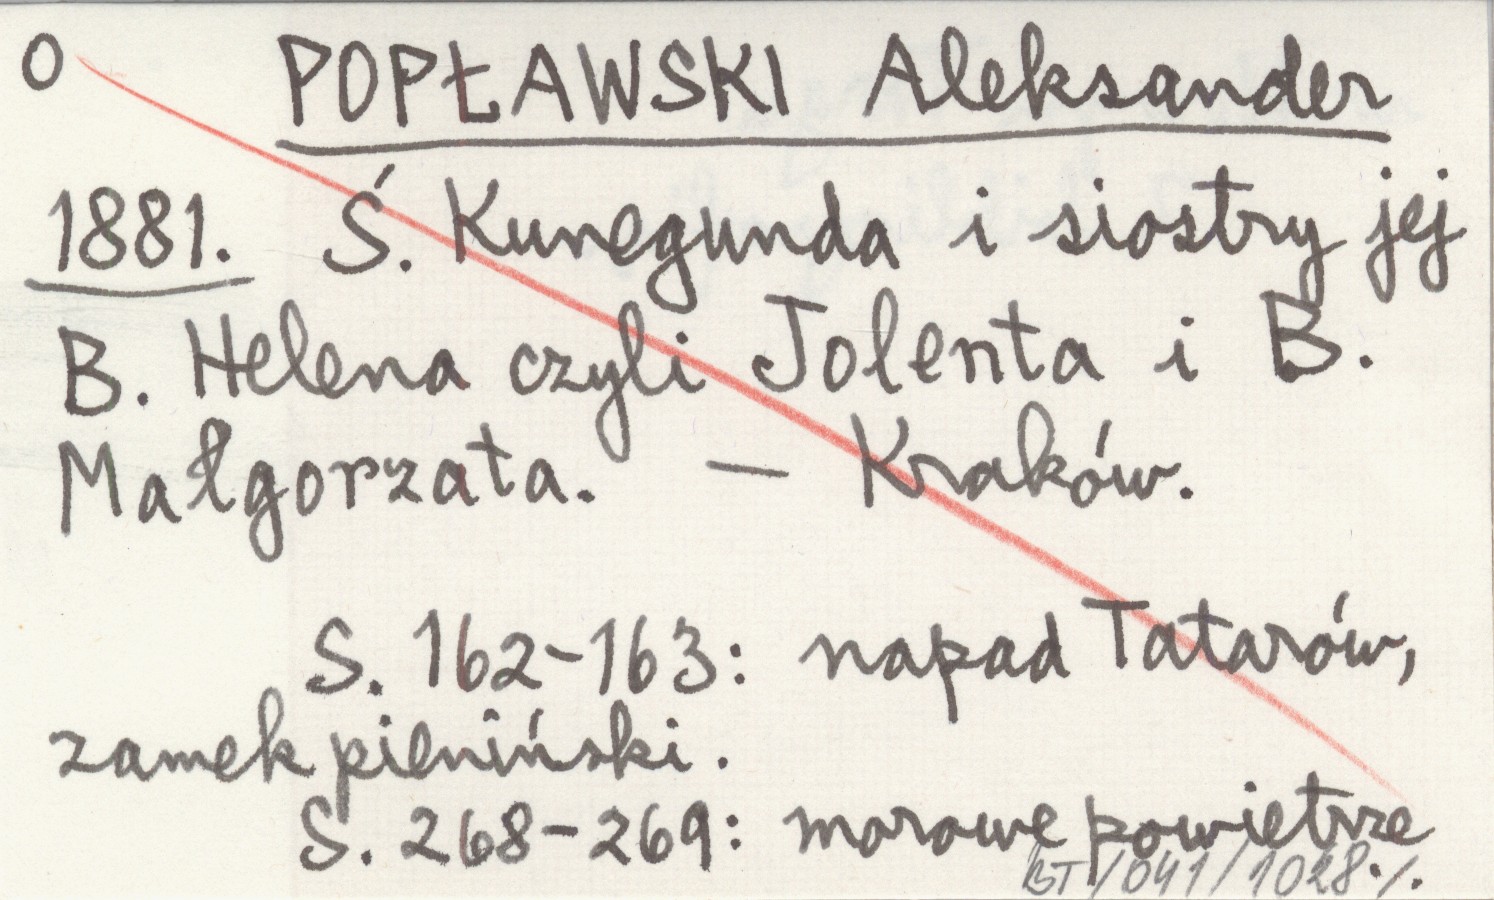 O POPŁAWSKI Aleksander
1881. Ś. Kunegunda i siostry jej
B. Helena czyli Jolenta i B.
Małgorzata. — Kraków.
S. 162-163: napad Tatarów,
zamek pieniński.
S. 268-269: morowe powietrze
BT/041/1028./.